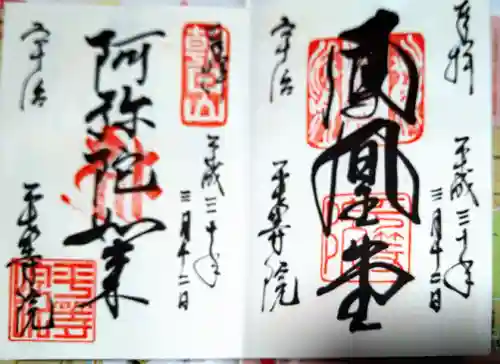 奉拝
平成三十年
三月十二日
鳳凰堂
宇治
平等院
奉拝
平成三十年
三月十二日
朝日山
阿弥陀如来
宇治
平等院